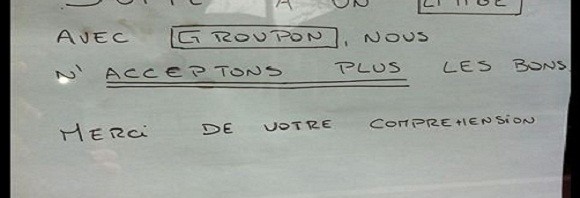 À UN
AVEC GROUPON, NOUS
N'ACCEPTONS PLUS LES BONS
MERCi DE VOTRE COMPREHENSiON